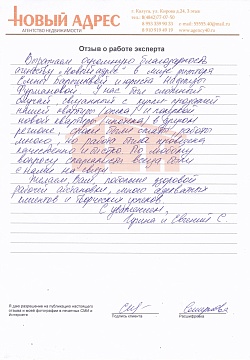 НОВЫЙ АДРЕС
АГЕНТСТВО НЕДВИЖИМОСТИ
г. Калуга, ул. Кирова д.24, 3 этаж
Отзыв о работе эксперта
Выражаем огромную благодарность
агентству "Новый адрес" в лице риэлтора
Елены и юриста Надежды
Фурмановой. У нас был сложный
случай связанной с куплей продажей
нашей квартиры и покупкой
новой квартиры (ипотека) в другом
регионе, сжатые были сроки, работы
много, но работа была проведена
качественно и быстро. По любому
вопросу специалисты всегда были
с нами на связи.
Желаем Вам побольше здоровой
рабочей обстановки, много адекватных
клиентов и творческих успехов.
С уважением,
Ирина и Евгений С.
Я даю разрешение на публикацию настоящего
отзыва и моей фотографии в печатных СМИ и
Интернете
Подпись клиента
Расшифровка